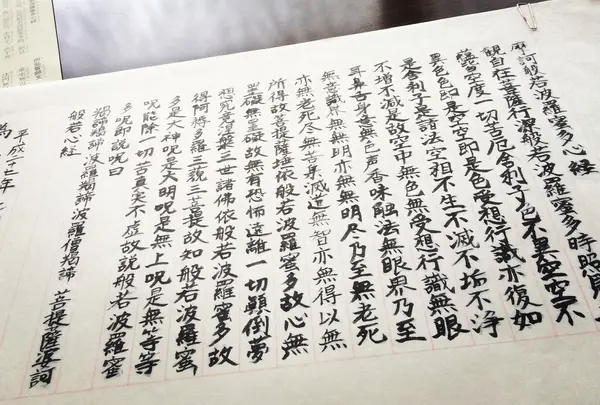 摩訶般若波羅蜜多心経
観自在菩薩行深般若波羅蜜多時照見
蘊皆空度一切苦厄舎利子色不異空空不
異色色即是空空即是色受想行識亦復如
是舎利子是諸法空相不生不滅不垢不浄
不増不減是故空中無色無受想行識無眼
耳鼻舌身意無色声香味触法無眼界乃至
無意識界無無明亦無無明尽乃至無老死
亦無老死尽無苦集滅道無智亦無得以無
所得故菩提薩埵依般若波羅蜜多故心無
罣礙無罣礙故無有恐怖遠離一切顛倒夢
想究竟涅槃三世諸佛依般若波羅蜜多故
得阿耨多羅三藐三菩提故知般若波羅蜜
多是大神呪是大明呪是無上呪是無等等
呪能除一切苦真実不虚故説般若波羅蜜
多呪即説呪曰
羯諦羯諦波羅羯諦波羅僧羯諦 菩提薩婆訶
般若心経
平成二七年
為